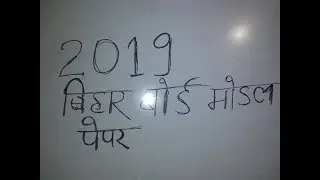 2019
बिहार बोर्ड मोडल
पेपर